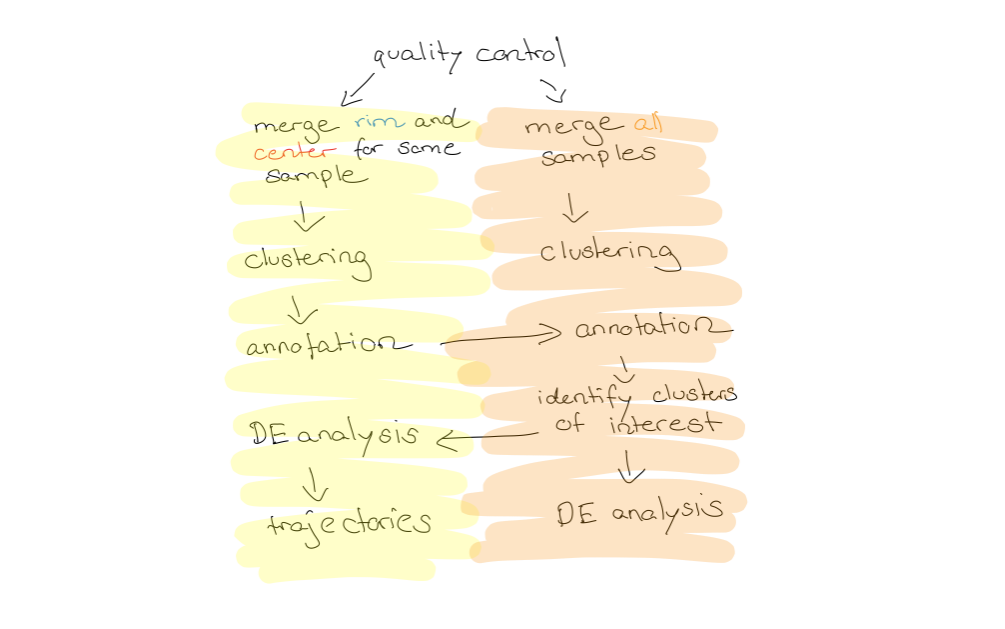 quality control
merge rim and
center for same
sample
clustering
annotation
DE analysis
trajectories
merge all
samples
clustering
annotation
identify clusters
of interest
DE analysis